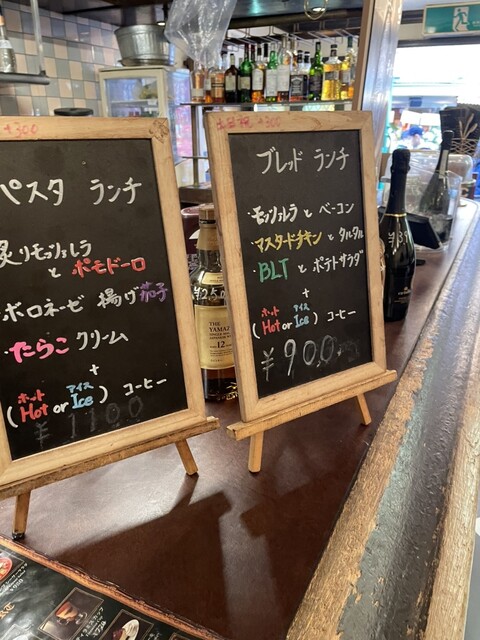 +300
パスタ ランチ
炙リモッツァレラ
と ポモドーロ
ボロネーゼ 揚げ茄子
・たらこクリーム
+
(ホット Hot or アイス Ice) コーヒー
¥1100
土日祝 +300
ブレッド ランチ
・モッツァレラ と ベーコン
・マスタードチキン と タルタル
・BLT と ポテトサラダ
+
(ホット Hot or アイス Ice) コーヒー
¥900
THE
YAMAZ
12